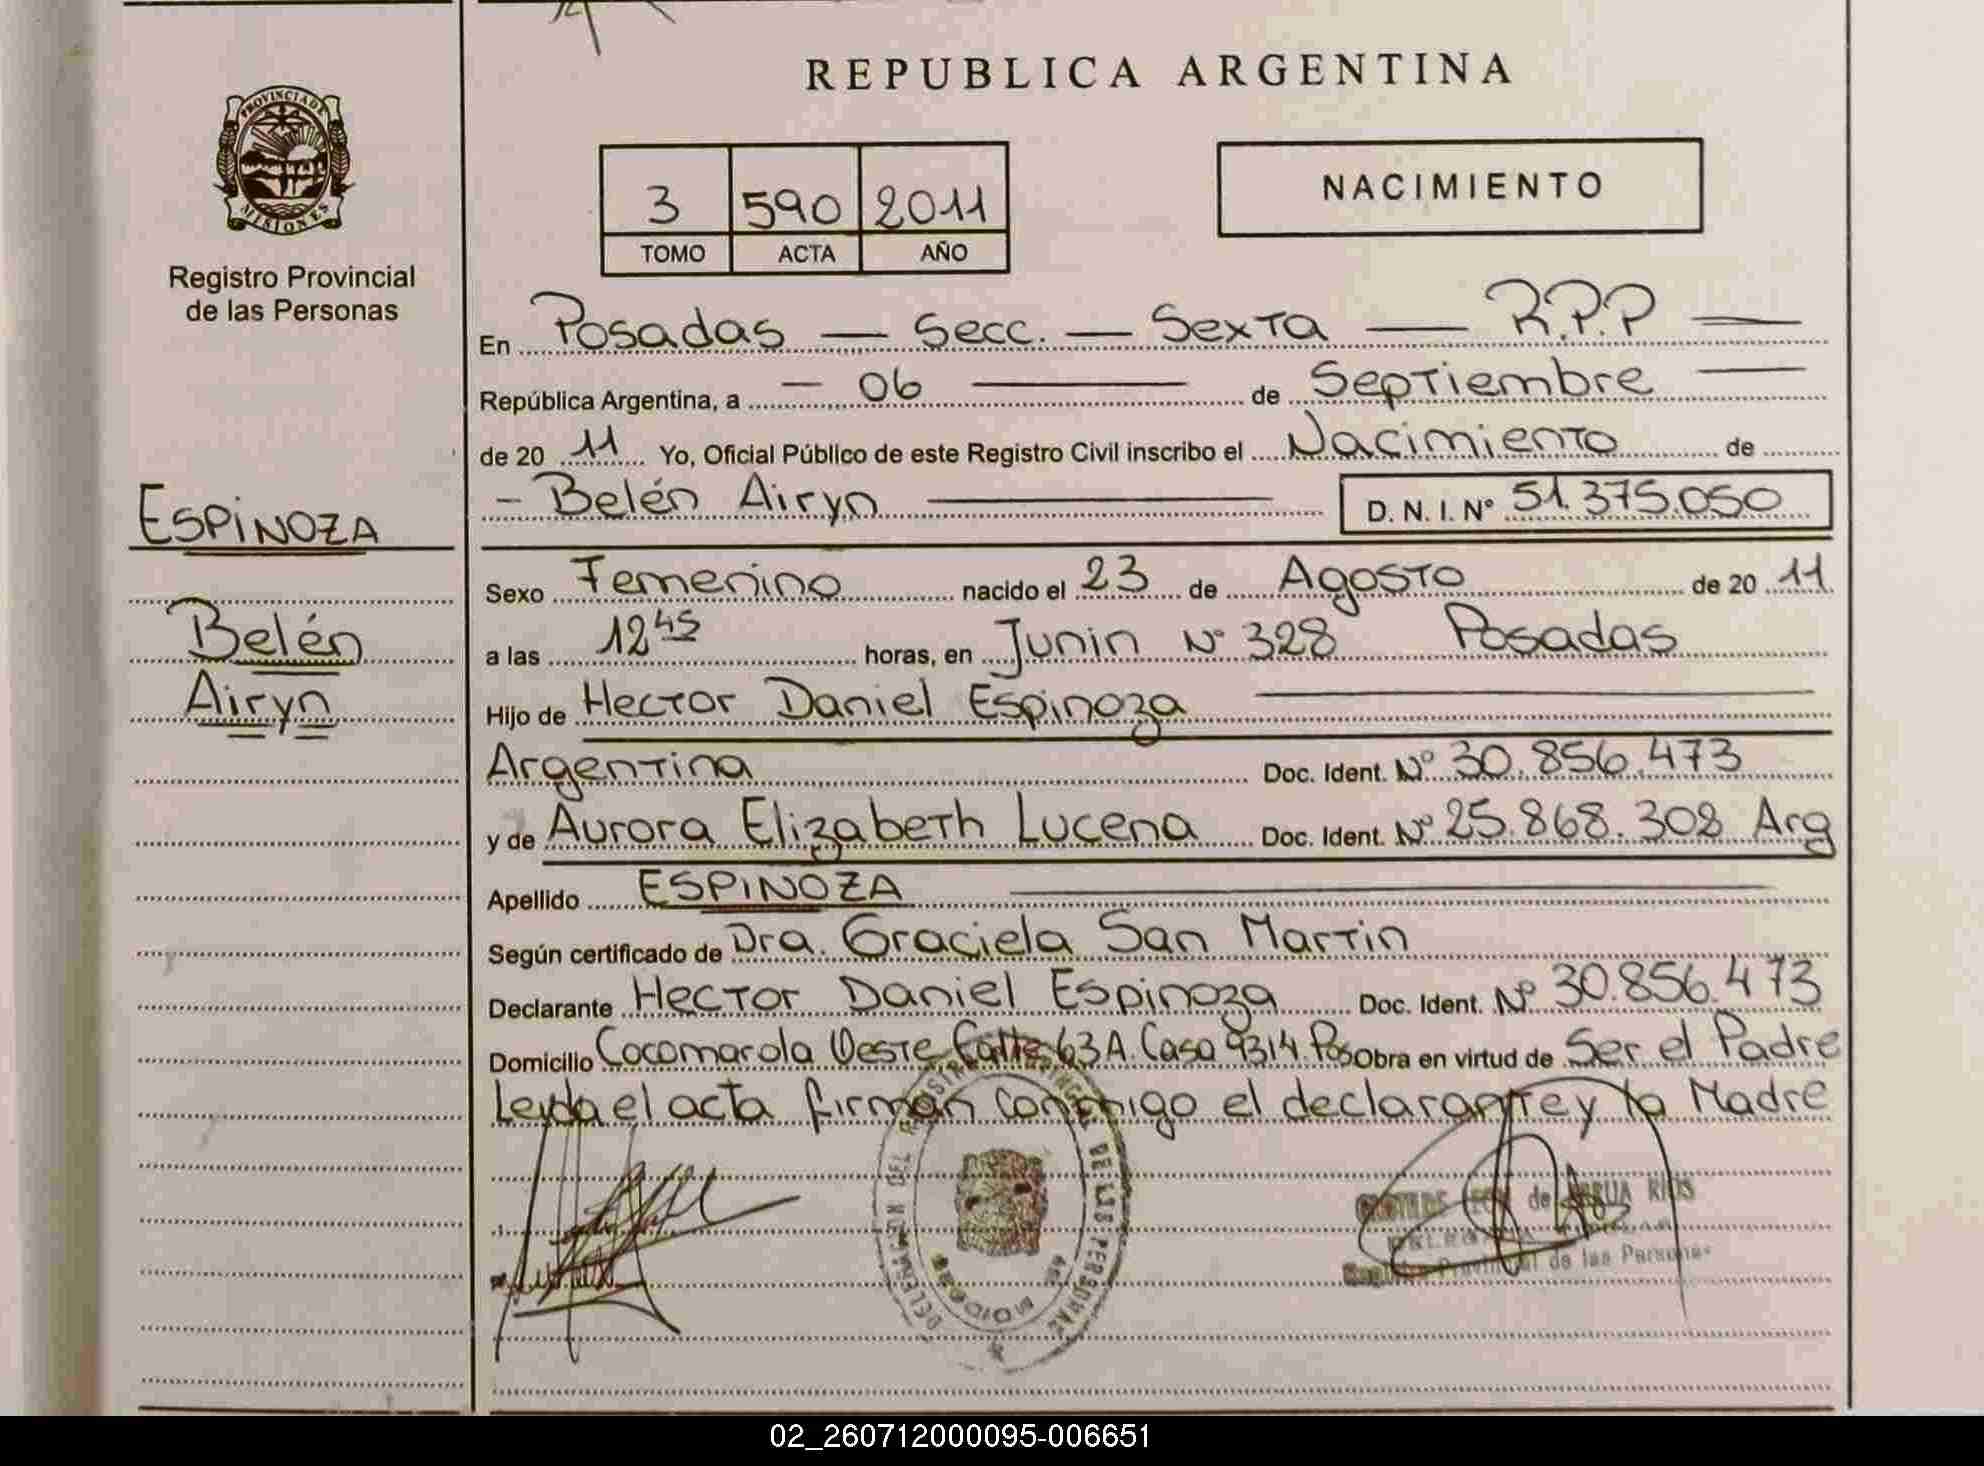 REPUBLICA ARGENTINA
PROVINCIA DE
MISIONES
Registro Provincial
de las Personas
3 590 2011
TOMO ACTA AÑO
NACIMIENTO
En Posadas — Secc. — Sexta — R.P.P —
República Argentina, a — 06 — de Septiembre —
de 20 11 Yo, Oficial Público de este Registro Civil inscribo el Nacimiento de
- Belén Airyn — D. N. I. Nº 51.375.050
ESPINOZA
Belén
Airyn
Sexo Femenino nacido el 23 de Agosto de 20 11
a las 12 45 horas, en Junin Nº 328 Posadas
Hijo de Hector Daniel Espinoza —
Argentina Doc. Ident. Nº 30.856.473
y de Aurora Elizabeth Lucena Doc. Ident. Nº 25.868.308 Arg
Apellido ESPINOZA —
Según certificado de Dra. Graciela San Martin
Declarante Hector Daniel Espinoza Doc. Ident. Nº 30.856.473
Domicilio Cocomarola Oeste Calle 63 A. Casa 9314. Pos Obra en virtud de Ser el Padre
Leyda el acta firman conmigo el declarante y la Madre
DE LAS PERSONAS
de las Personas
02_260712000095-006651